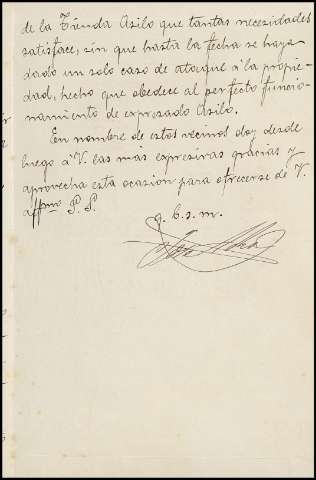 de la Tienda Asilo que tantas necesidades
satisface, sin que hasta la fecha se haya
dado un solo caso de ataque á la propie-
dad, hecho que obedece al perfecto funcio-
namiento de expresado Asilo.
En nombre de estos vecinos doy desde
luego á V. las más expresivas gracias y
aprovecha esta ocasion para ofrecerse de V.
affmo S. S.
q. b. s. m.